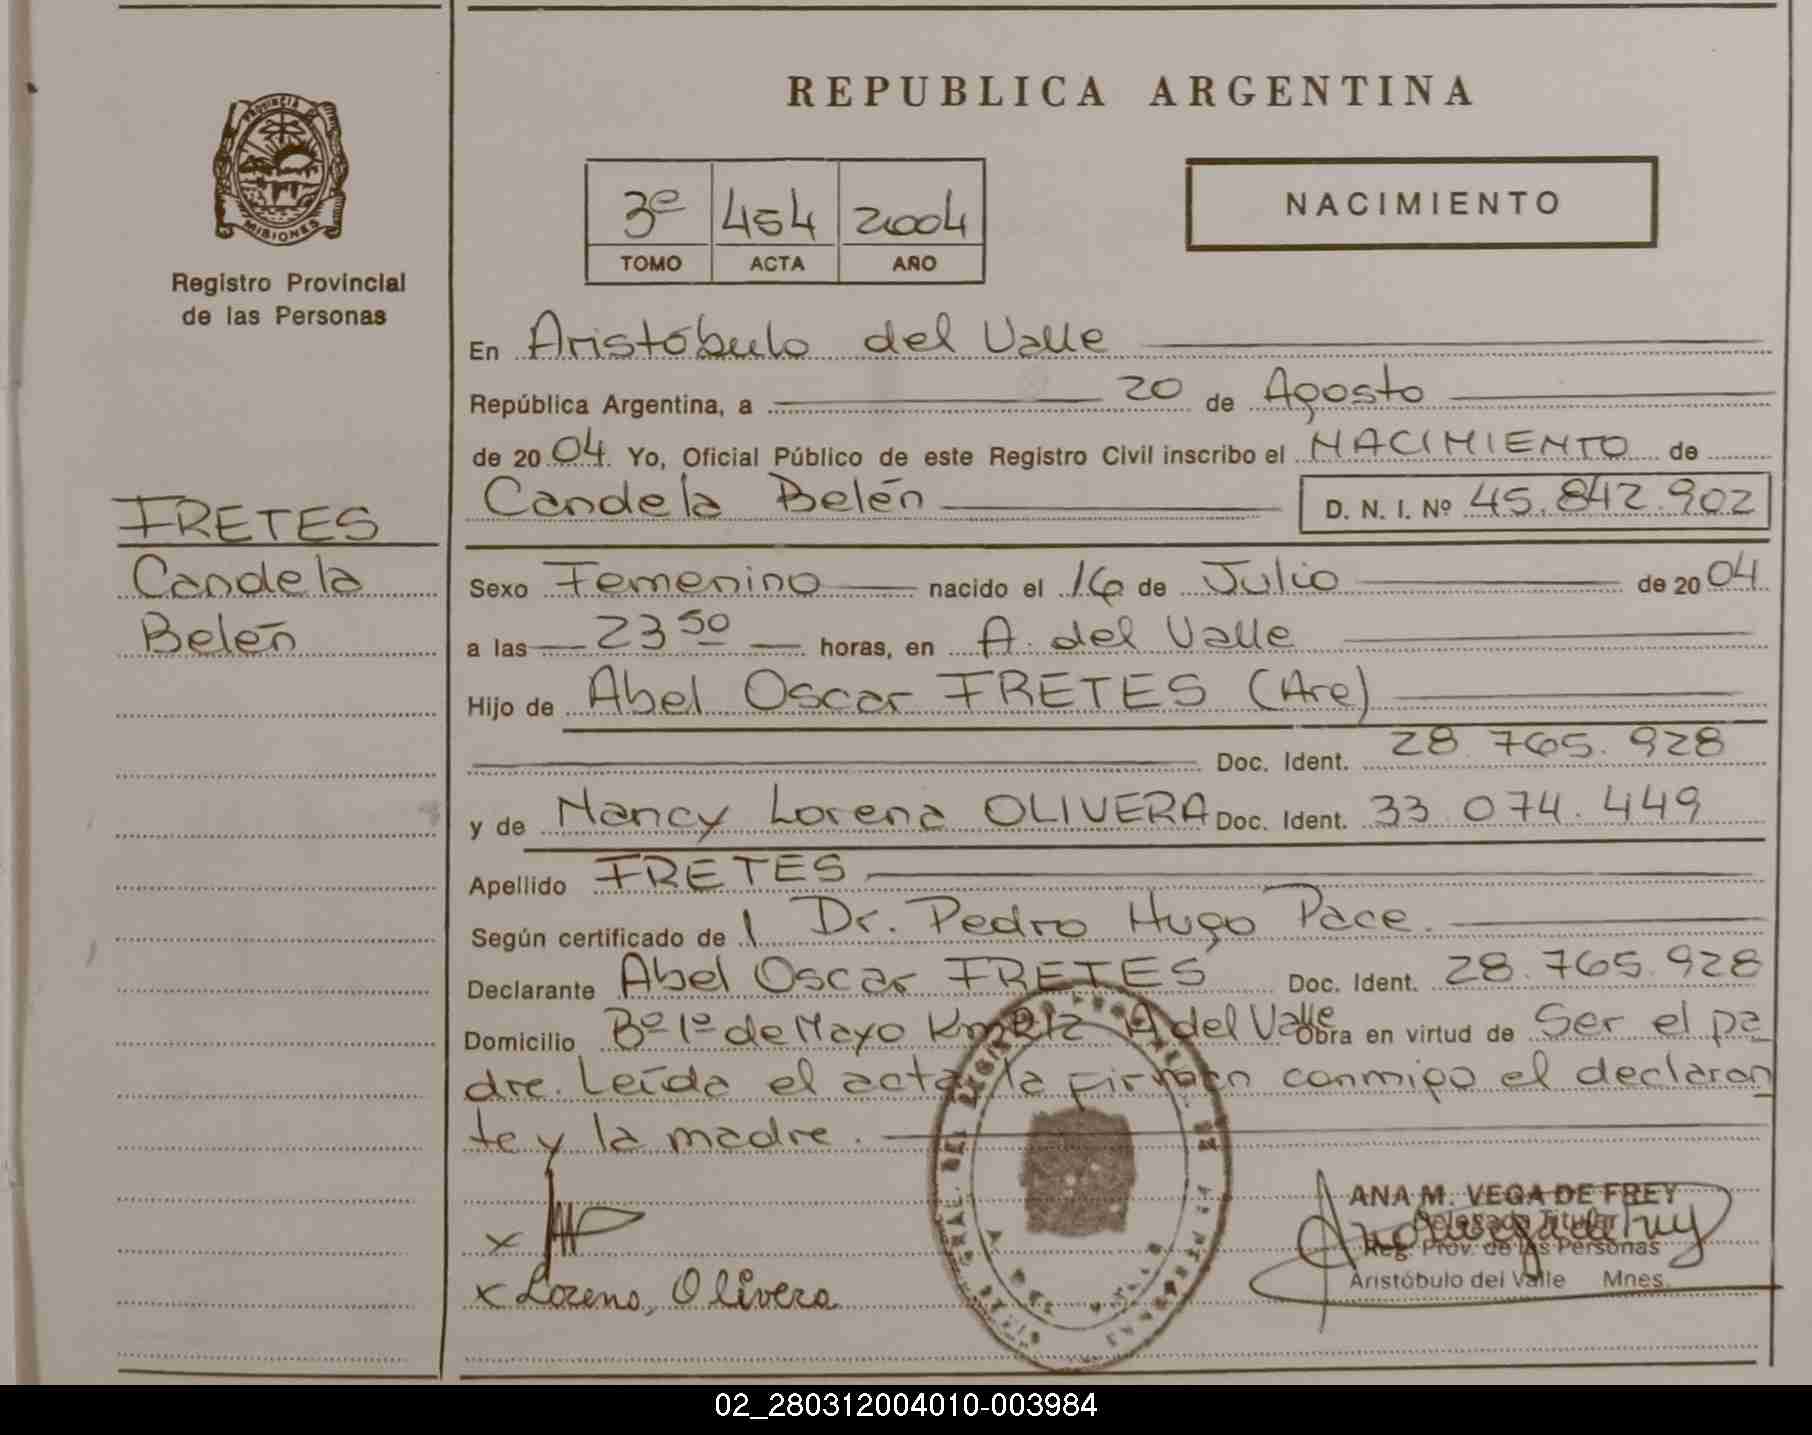 REPUBLICA ARGENTINA
PROVINCIA DE MISIONES
Registro Provincial
de las Personas
3º 454 2004
TOMO ACTA AÑO
NACIMIENTO
En Aristóbulo del Valle
República Argentina, a 20 de Agosto
de 2004 Yo, Oficial Público de este Registro Civil inscribo el NACIMIENTO de
Candela Belén D. N. I. Nº 45.842.902
FRETES
Candela
Belén
Sexo Femenino nacido el 16 de Julio de 2004
a las 23 50 horas, en A. del Valle
Hijo de Abel Oscar FRETES (Are)
Doc. Ident. 28.765.928
y de Nancy Lorena OLIVERA Doc. Ident. 33.074.449
Apellido FRETES
Según certificado de l Dr. Pedro Hugo Pace.
Declarante Abel Oscar FRETES Doc. Ident. 28.765.928
Domicilio Bº 1º de Mayo A del Valle Obra en virtud de Ser el pa
dre. Leída el acta, la firman conmigo el declaran
te y la madre.
ANA M. VEGA DE FREY
Delegada Titular
Reg. Prov. de las Personas
Aristóbulo del Valle Mnes.
x
x Lorena, Olivera
02_280312004010-003984